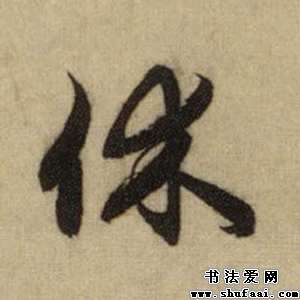 休
书法爱网
www.shufaai.com